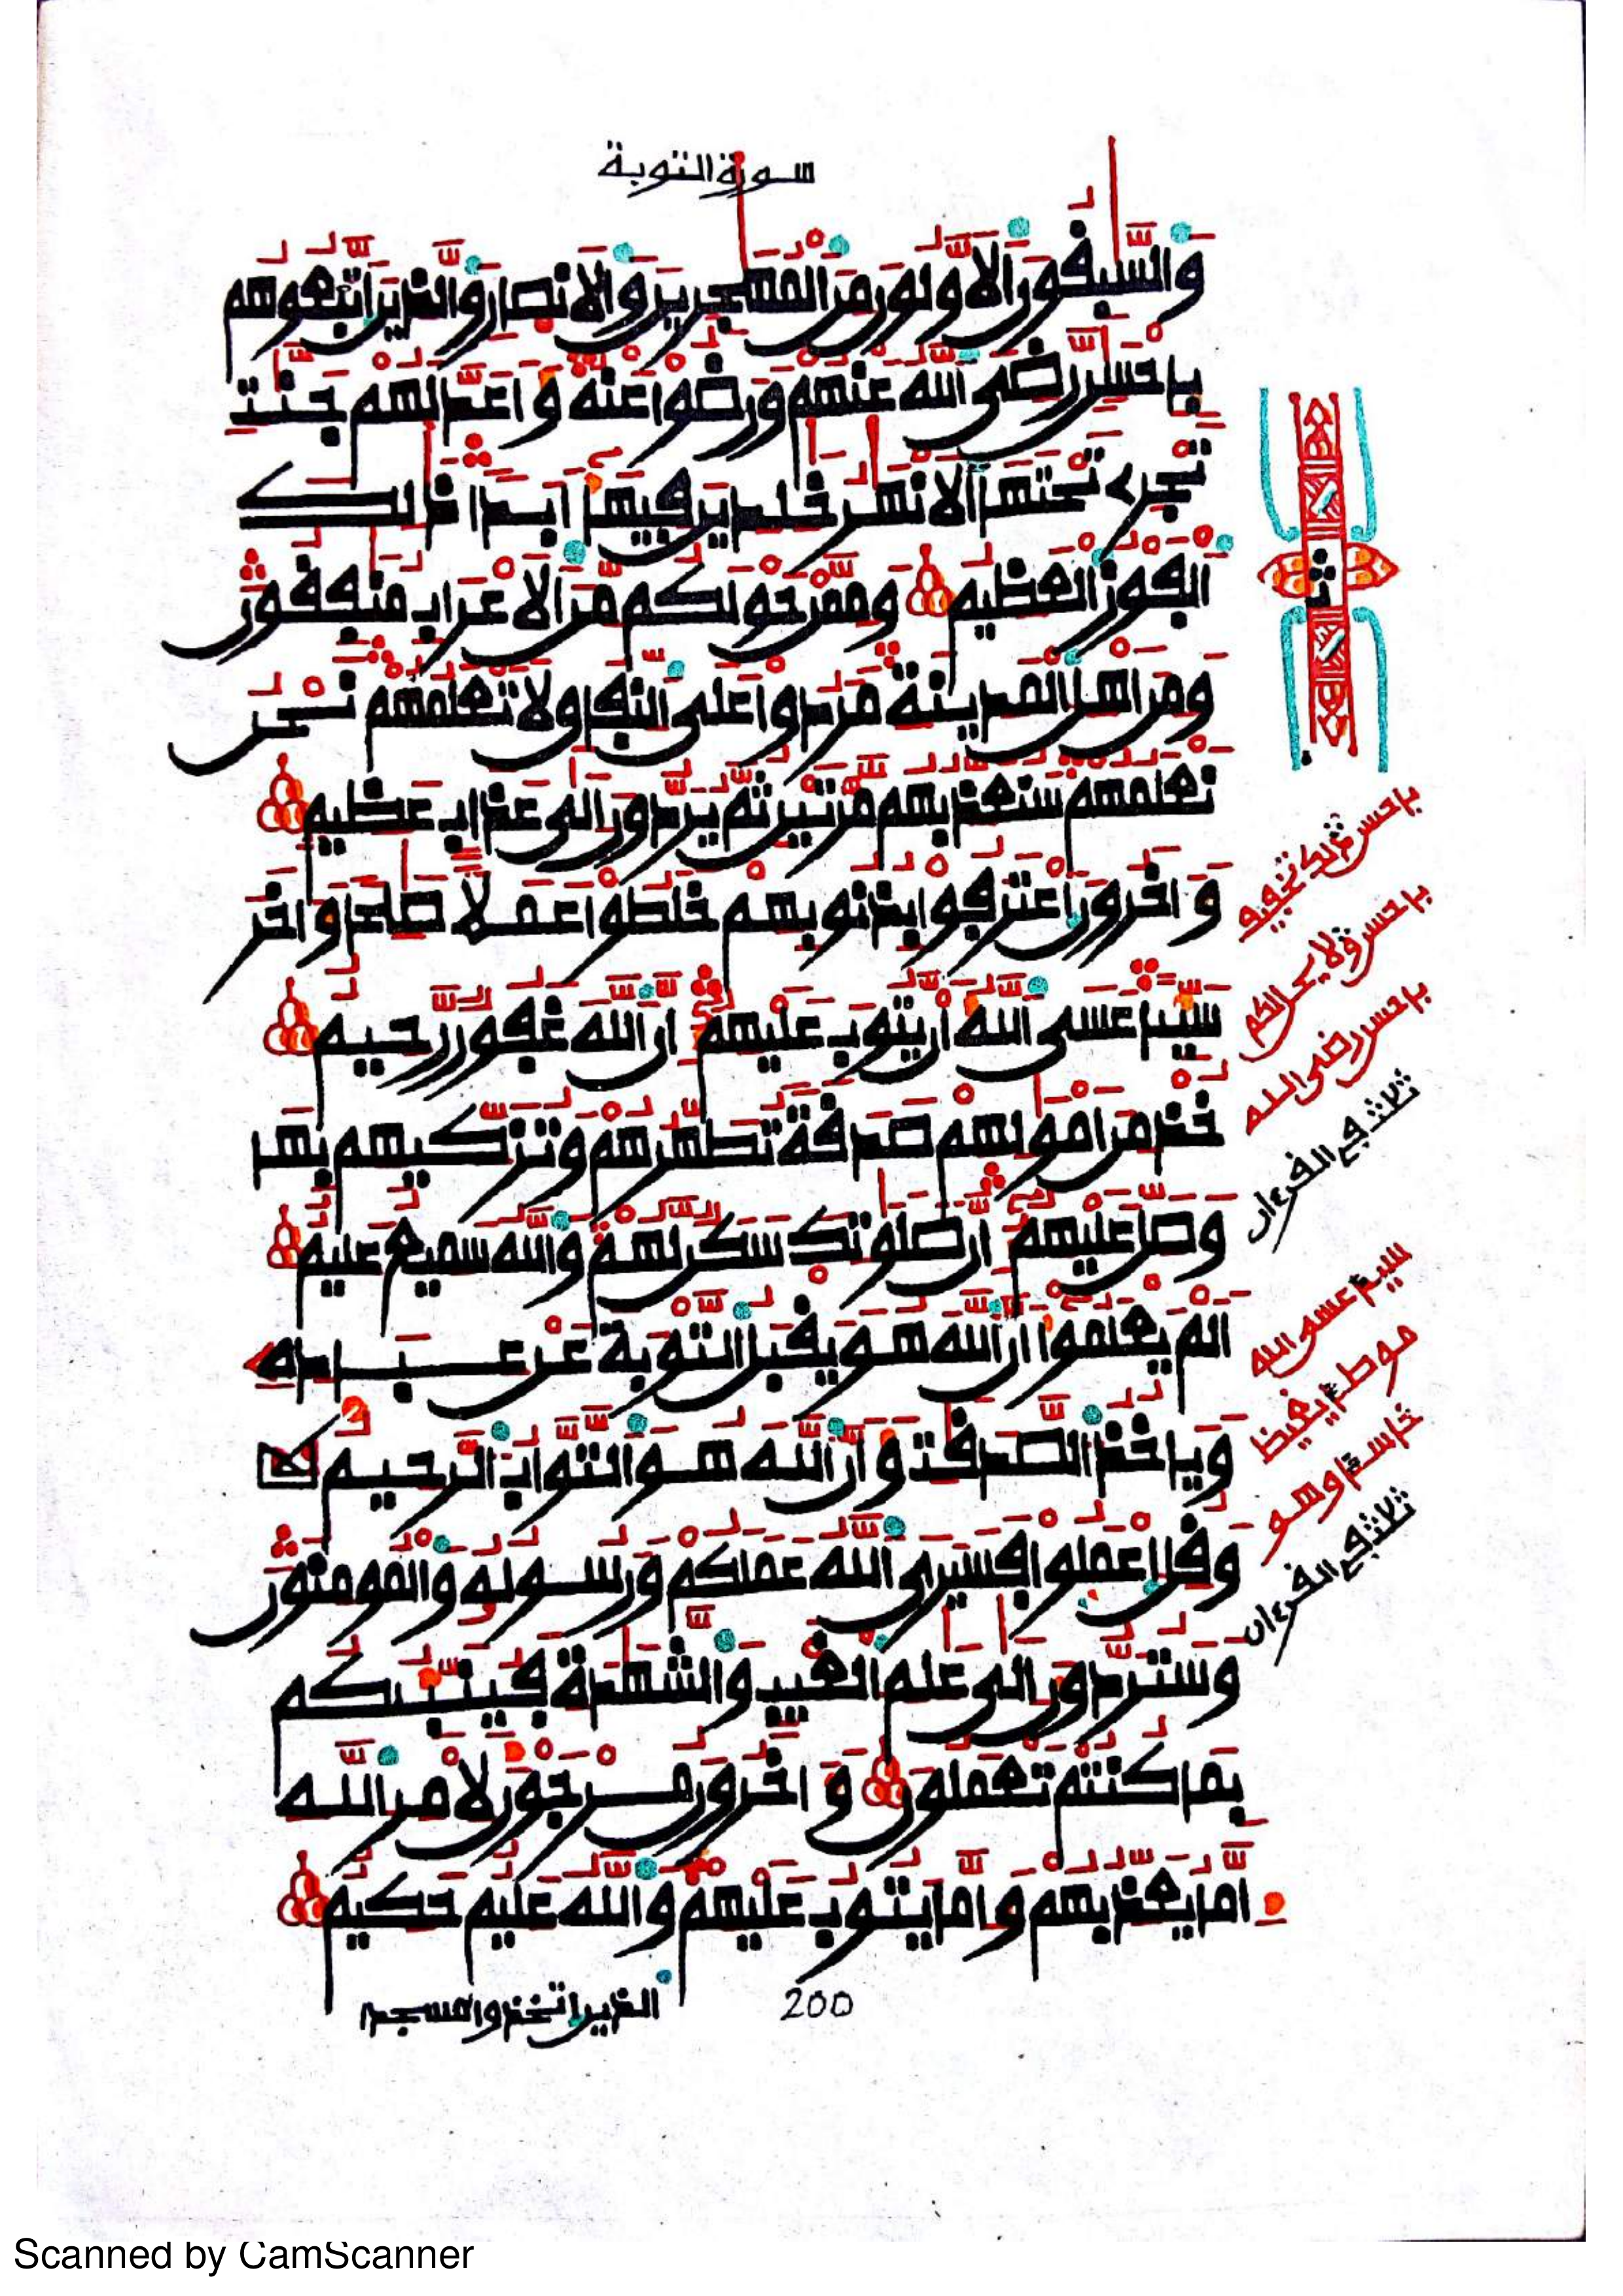 سورة التوبة
والسبقون الاولون من المهجرين والانصار والذين اتبعوهم
بإحسن رضي الله عنهم ورضوا عنه وأعد لهم جنت
تجرے تحتها الانهر خلدين فيها أبدا ذلك
الفوز العظيم وممن حولكم من الاعراب منفقون
ومن اهل المدينة مردوا على النفاق لا تعلمهم نحن
نعلمهم سنعذبهم مرتين ثم يردون إلى عذاب عظيم
وءاخرون اعترفوا بذنوبهم خلطوا عملا صلحا وءاخر
سيئا عسى الله أن يتوب عليهم إن الله غفور رحيم
خذ من امولهم صدقة تطهرهم وتزكيهم بها
وصل عليهم إن صلوتك سكن لهم والله سميع عليم
ألم يعلموا أن الله هو يقبل التوبة عن عباده
وياخذ الصدقت وأن الله هو التواب الرحيم
وقل اعملوا فسيرى الله عملكم ورسوله والمومنون
وستردون إلى علم الغيب والشهدة فينبئكم
بما كنتم تعملون وءاخرون مرجون لأمر الله
إما يعذبهم وإما يتوب عليهم والله عليم حكيم
ثمن
بإحسن ولا يحل لكم
بإحسن رضي الله
ثلاث في القرءان
سيئا عسى الله
موطئا يغيظ
خاسئا وهو
ثلاث في القرءان
الذين اتخذوا مسجدا
200
Scanned by CamScanner